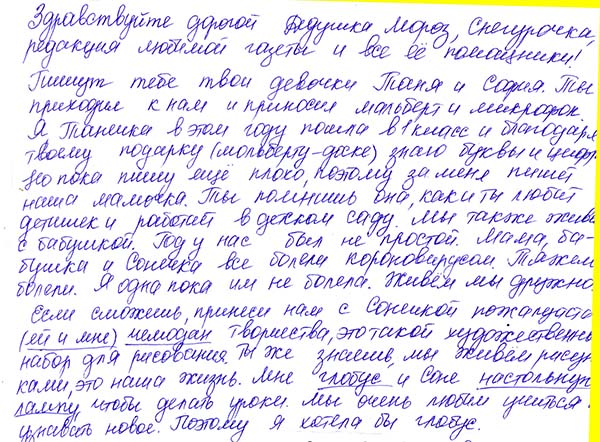 Здравствуйте дорогой Дедушка Мороз, Снегурочка,
редакция любимой газеты и все её помощники!
Пишут тебе твои девочки Таня и София. Ты
приходил к нам и приносил мальберт и микрофон.
Я Танечка в этом году пошла в 1 класс и благодаря
твоему подарку (мольберту-доске) знаю буквы и цифр
Но пока пишу ещё плохо, поэтому за меня пишет
наша мамочка. Ты помнишь она, как и ты любит
детишек и работает в детском саду. Мы также живё
с бабушкой. Год у нас был не простой. Мама, ба-
бушка и Сонечка все болели короновирусом. Тяжел
болели. Я одна пока им не болела. Живём мы дружно.
Если сможешь, принеси нам с Сонечкой пожалуста
(ей и мне) чемодан творчества, это такой художественны
набор для рисования ты же знаешь, мы живём рисун
ками, это наша жизнь. Мне глобус, и Соне настольную
лампу чтобы делать уроки. Мы очень любим учиться
узнавать новое. Поэтому я хотела бы глобус.